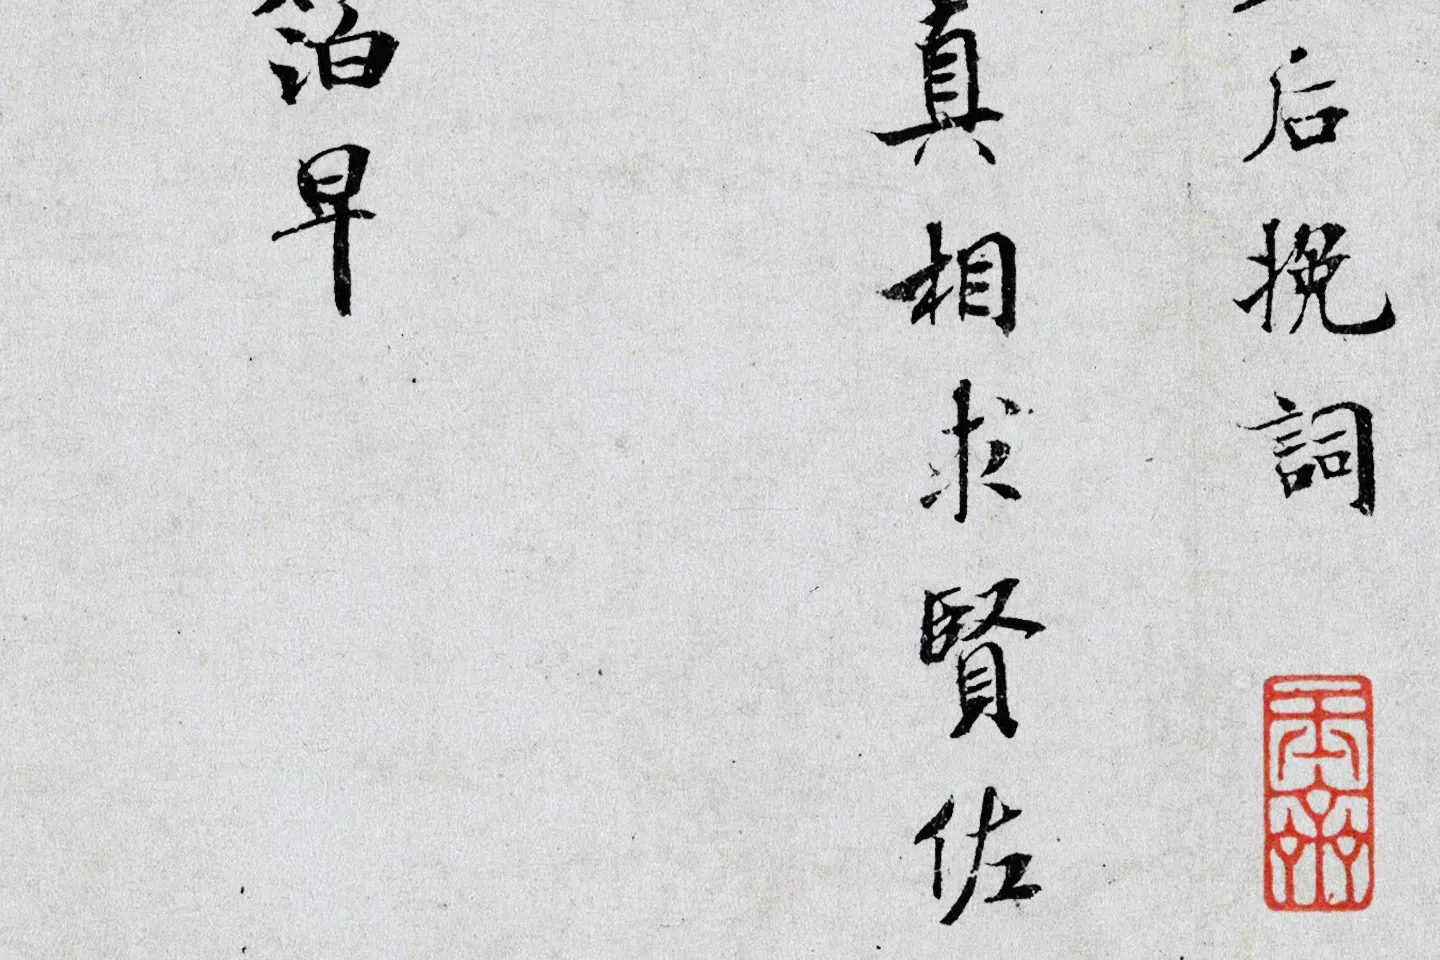 后挽詞
真相求賢佐
泊早